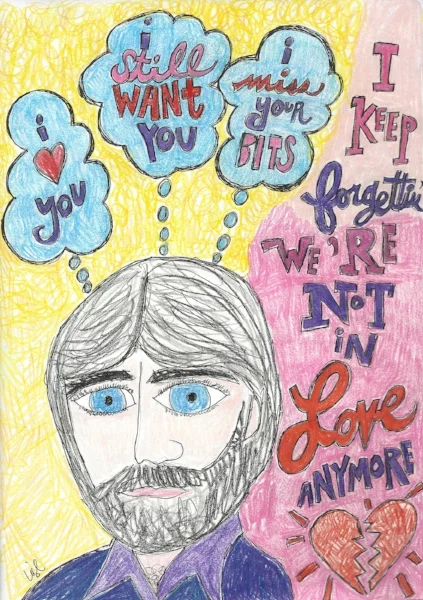 i
you
i
still
WANT
YOU
i
miss
your
BITS
I
KEEP
forgettin'
WE'RE
NOT
iN
Love
ANYMORE